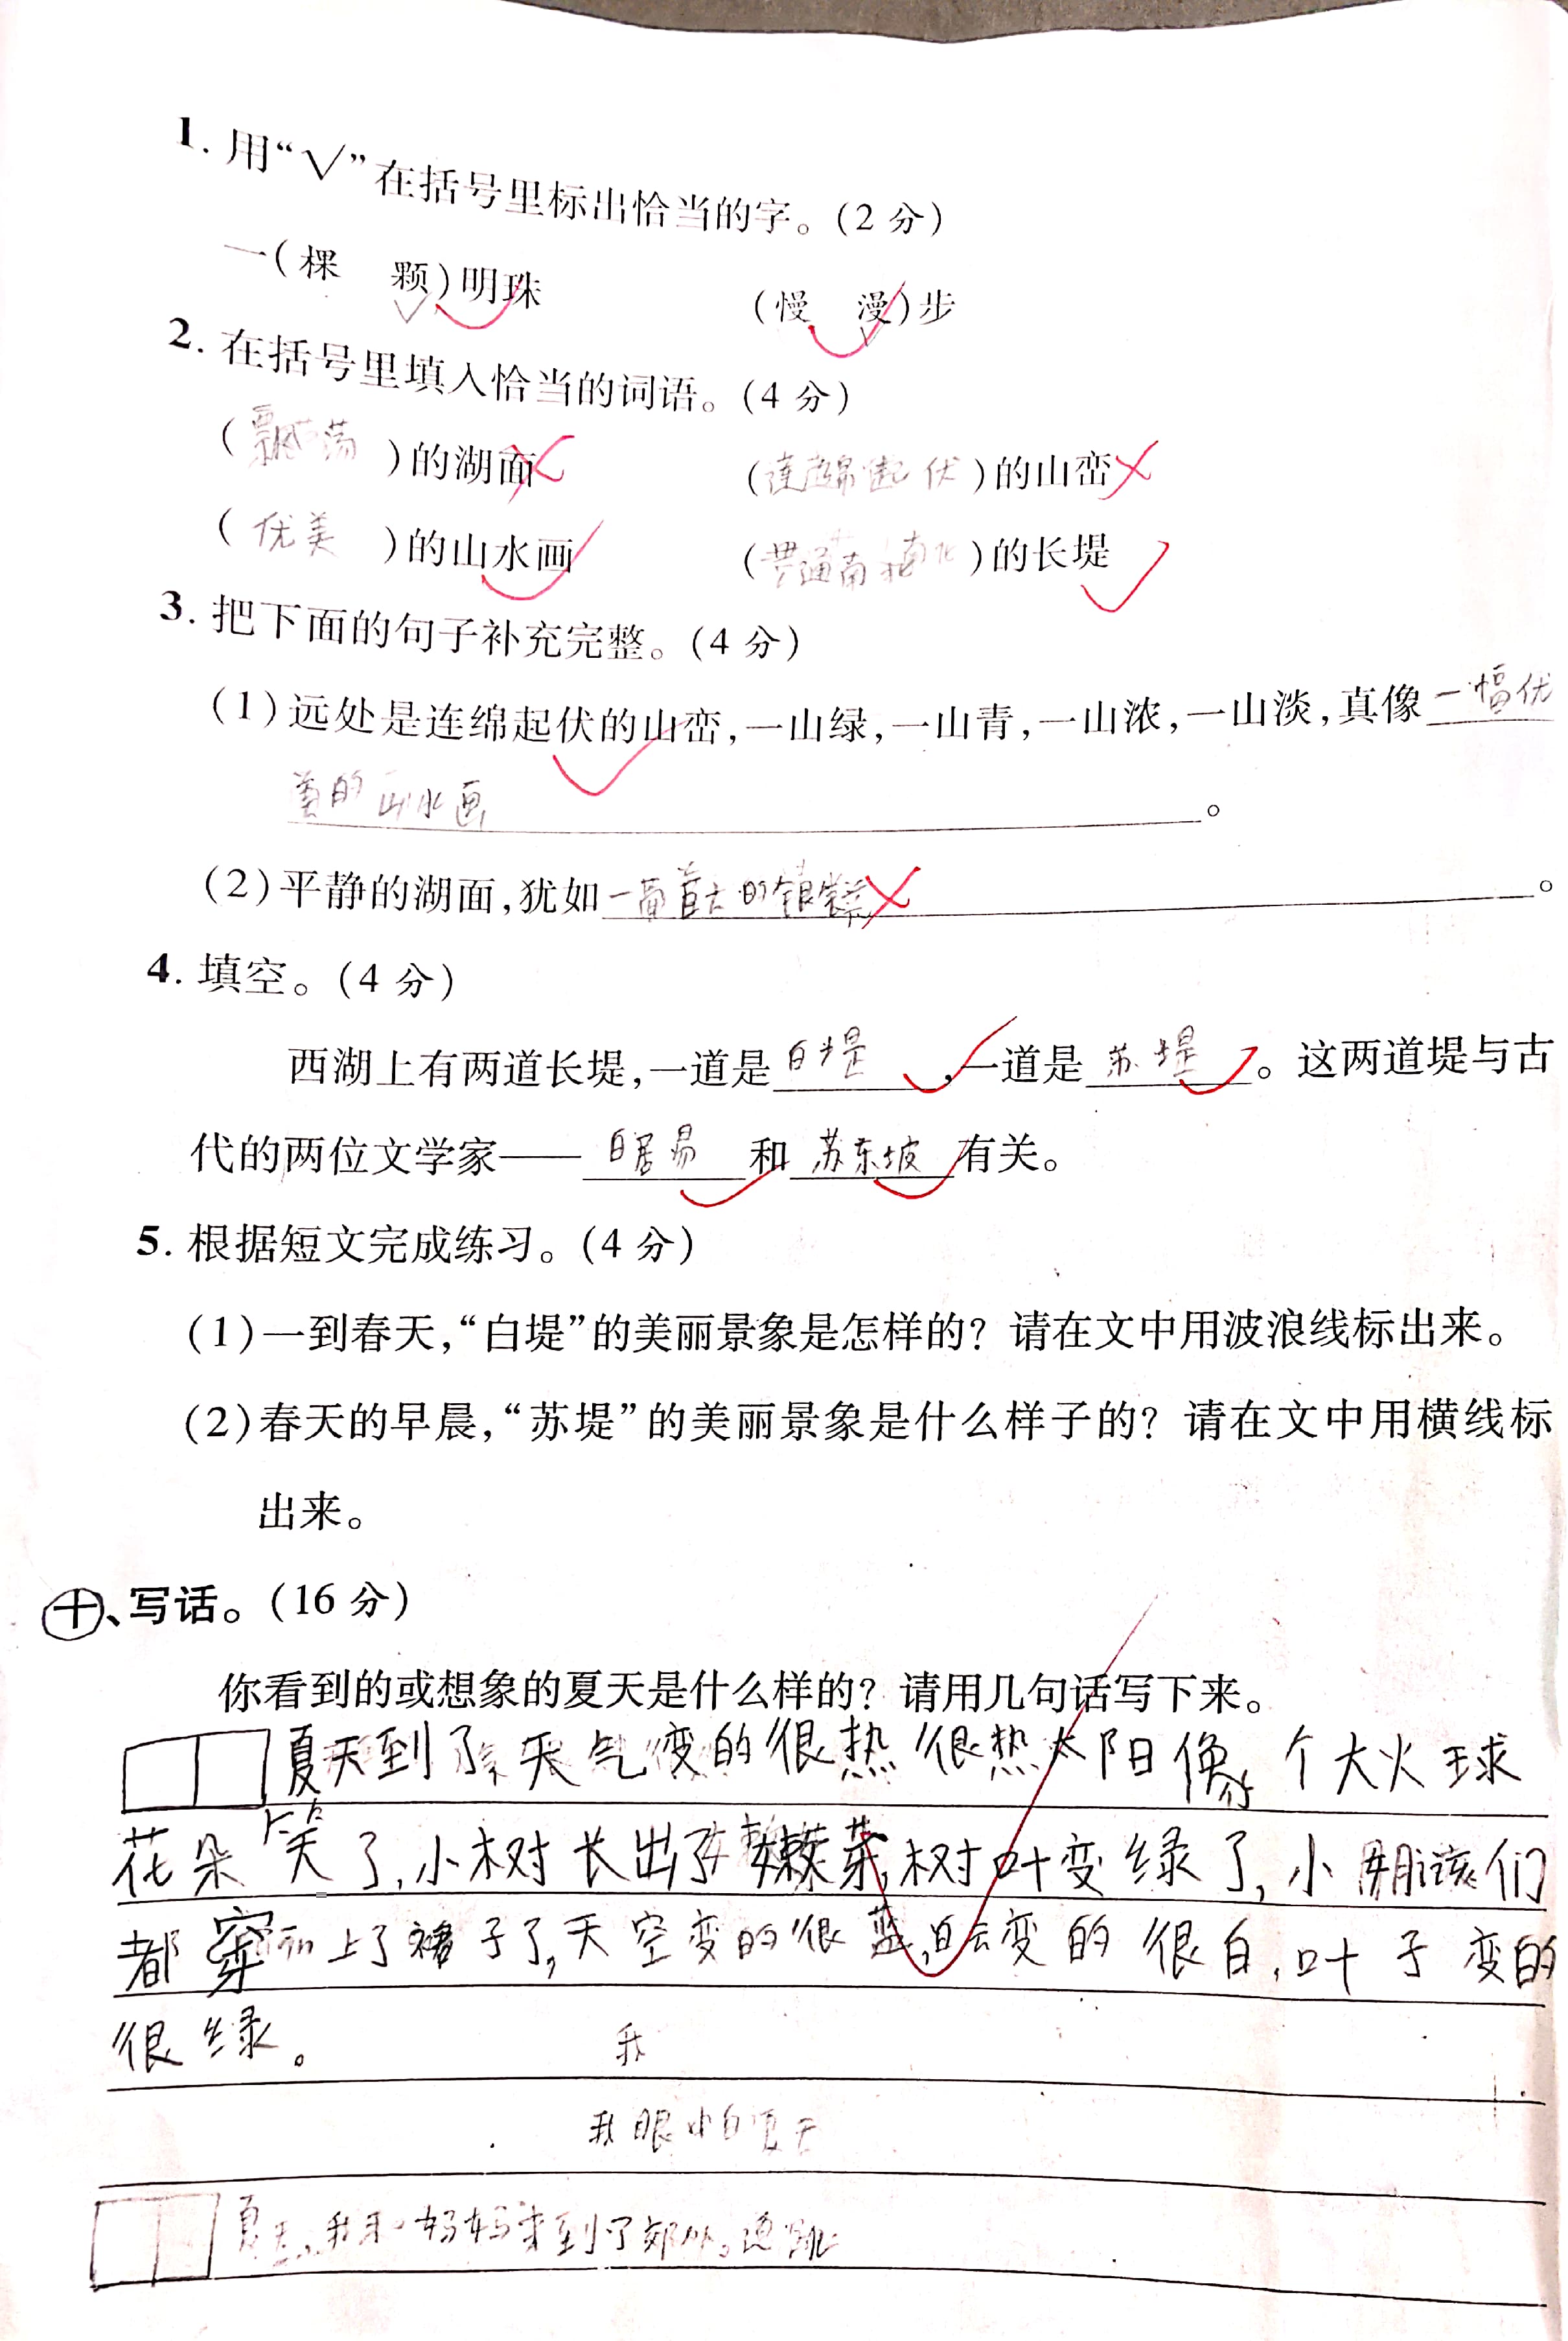 1. 用“√”在括号里标出恰当的字。(2 分)
一(棵 颗)明珠 (慢 漫)步
√ √
2. 在括号里填入恰当的词语。(4 分)
(飘荡)的湖面 (连绵起伏)的山峦
(优美)的山水画 (贯通南北)的长堤
3. 把下面的句子补充完整。(4 分)
(1)远处是连绵起伏的山峦,一山绿,一山青,一山浓,一山淡,真像一幅优
美的山水画。
(2)平静的湖面,犹如一面 的银。
4. 填空。(4 分)
西湖上有两道长堤,一道是白堤,一道是苏堤。这两道堤与古
代的两位文学家——白居易和苏东坡有关。
5. 根据短文完成练习。(4 分)
(1)一到春天,“白堤”的美丽景象是怎样的? 请在文中用波浪线标出来。
(2)春天的早晨,“苏堤”的美丽景象是什么样子的? 请在文中用横线标
出来。
十、写话。(16 分)
你看到的或想象的夏天是什么样的? 请用几句话写下来。
夏天到了,天气变的很热很热太阳像 个大火球
花朵笑了,小树长出了嫩芽,树叶变绿了,小 们
都穿上了裙子了,天空变的很蓝,白云变的很白,叶子变的
很绿。 我
我眼中白夏天
夏天,我和妈妈来到了郊外。